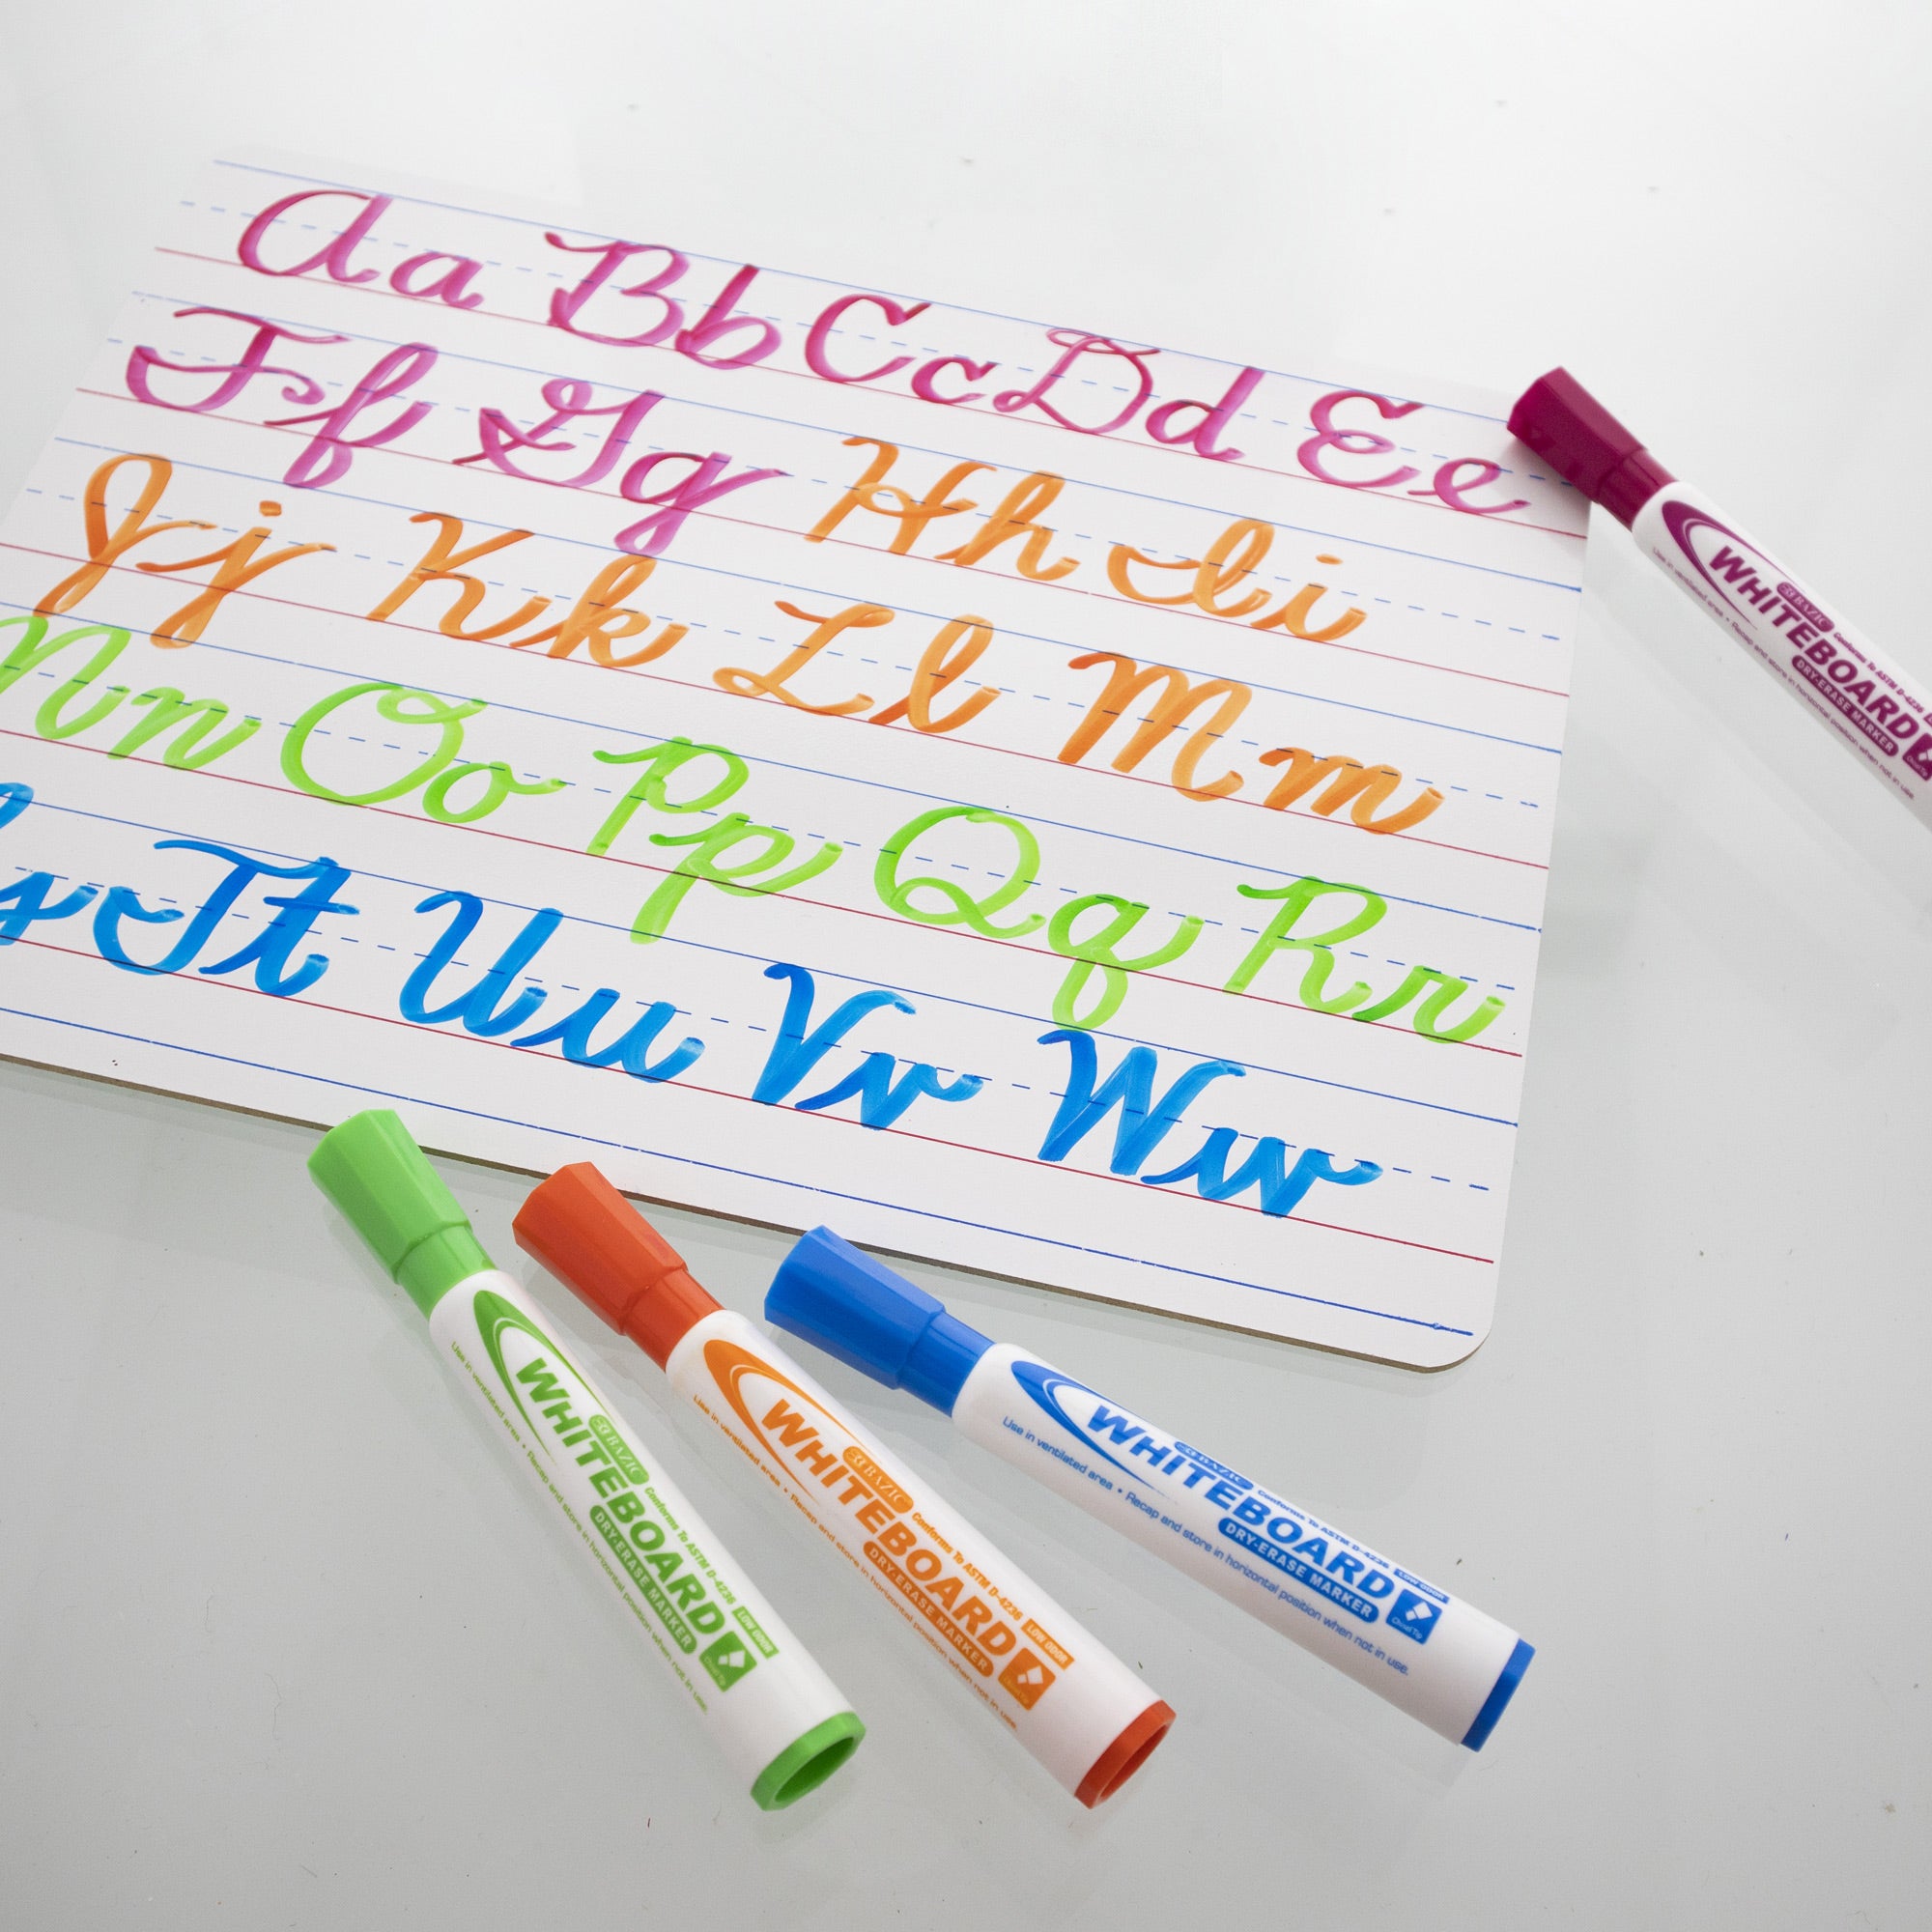 Aa Bb Cc Dd Ee
Ff Gg Hh Ii
Jj Kk Ll Mm
Nn Oo Pp Qq Rr
s Tt Uu Vv Ww
BAZIC
WHITEBOARD
Conforms To ASTM D-4236
DRY-ERASE MARKER
Chisel Tip
Use in ventilated area • Recap and store in horizontal position when not in use.
BAZIC
WHITEBOARD
Conforms To ASTM D-4236 LOW ODOR
DRY-ERASE MARKER
Chisel Tip
Use in ventilated area • Recap and store in horizontal position when not in use.
BAZIC
WHITEBOARD
Conforms To ASTM D-4236 LOW ODOR
DRY-ERASE MARKER
Chisel Tip
Use in ventilated area • Recap and store in horizontal position when not in use.
BAZIC
WHITEBOARD
Conforms To ASTM D-4236 LOW ODOR
DRY-ERASE MARKER
Chisel Tip
Use in ventilated area • Recap and store in horizontal position when not in use.